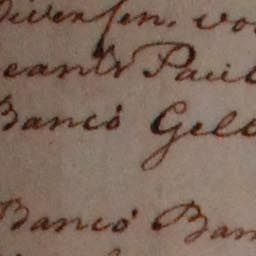 Diversen. vo
eants Paul
Banco Geld
Banco Ban